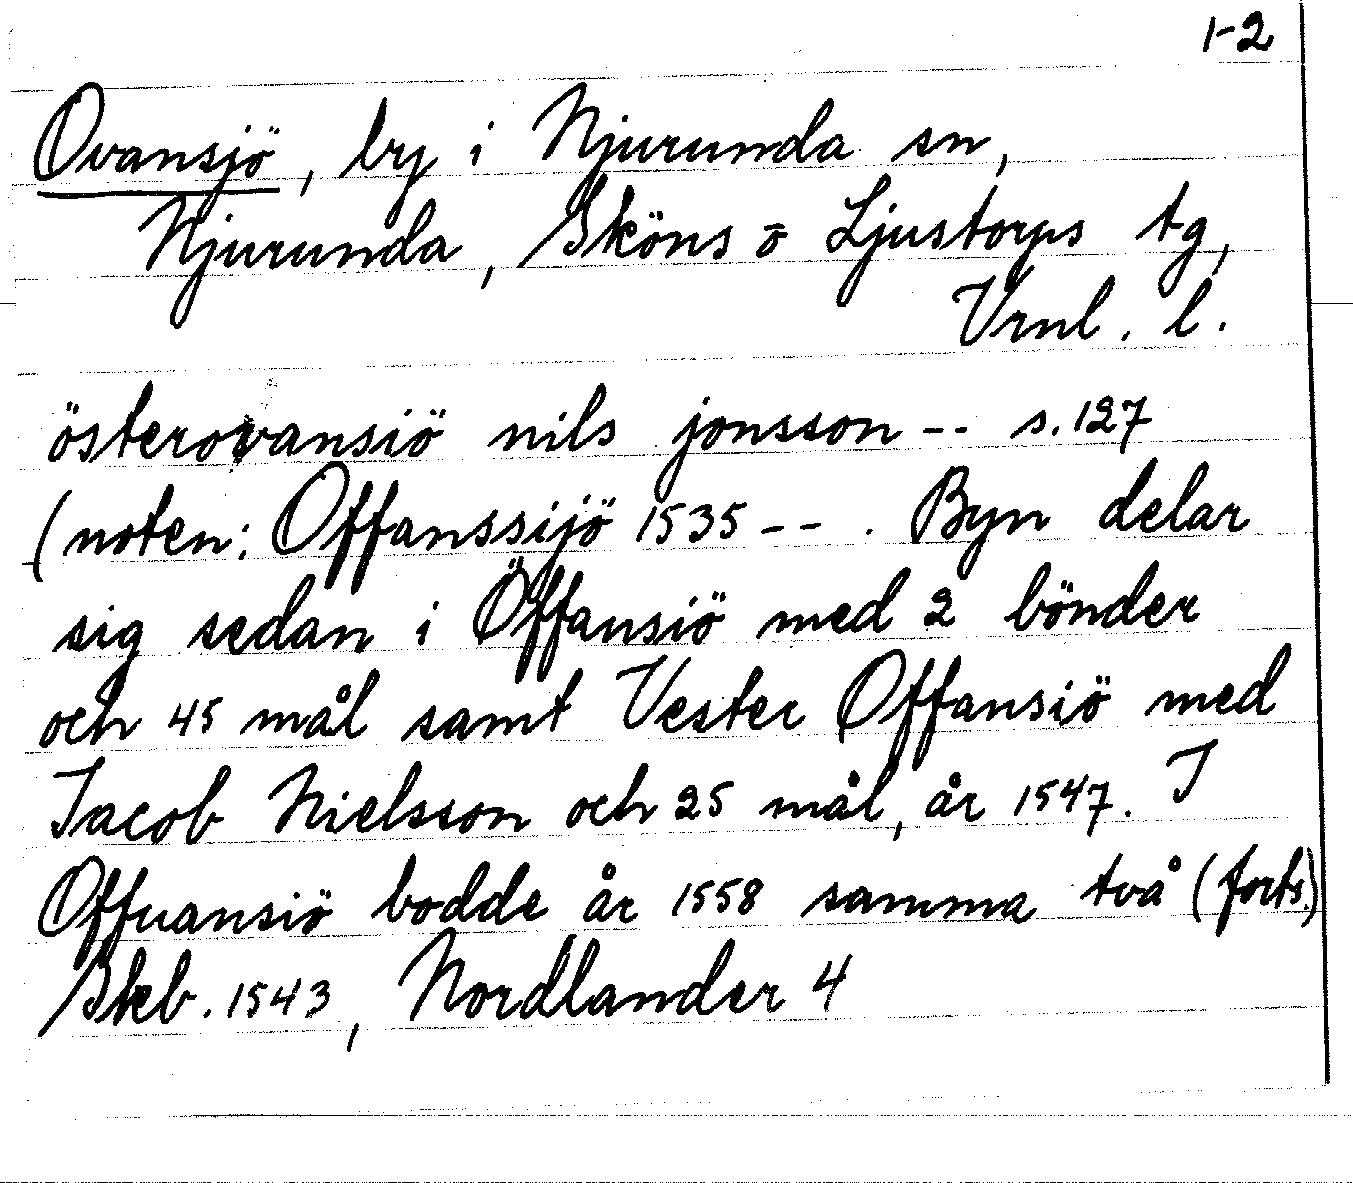 1-2
Ovansjö, by i Njurunda sn,
Njurunda, Sköns o Ljustorps tg,
Vrnl. l.
österovansiö nils jonsson -- s. 127
(noten: Offanssijö 1535 -- . Byn delar
sig sedan i Öffansiö med 2 bönder
och 45 mål samt Vester Offansiö med
Jacob Nielsson och 25 mål, år 1547. I
Offuansiö bodde år 1558 samma två (forts.)
Skb. 1543, Nordlander 4